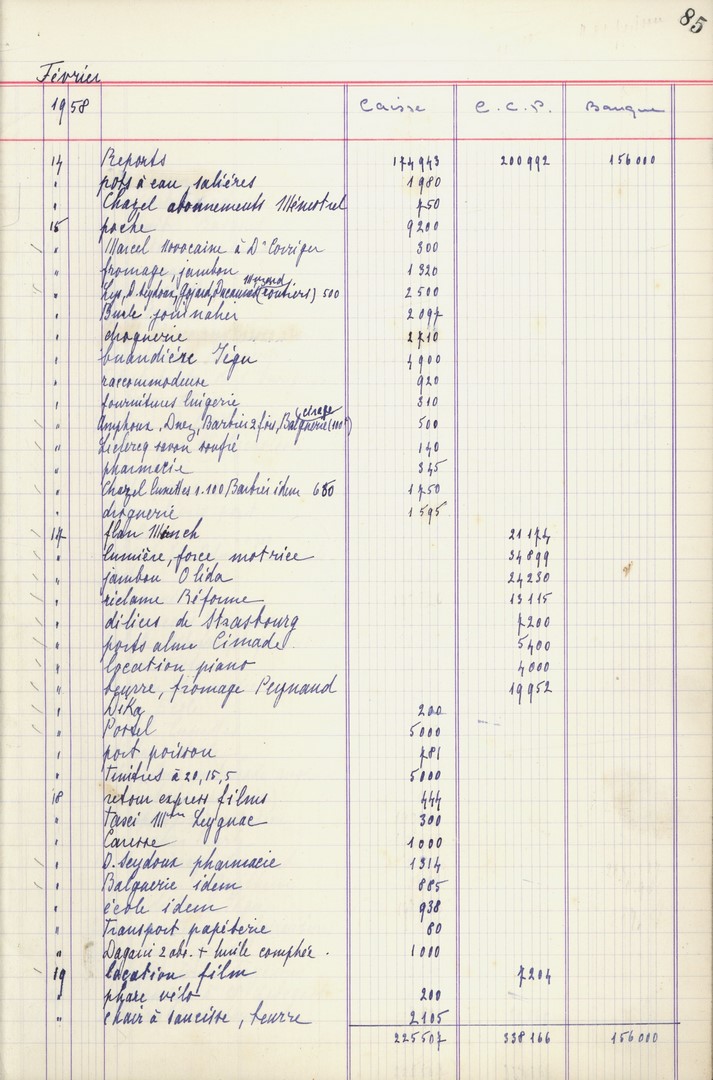 85
Février
1958 Caisse C.C.P. Banque
14 Reports 174943 200992 156000
" pots à eau, salières 1980
" Chazel abonnements Ménestrel 750
15 poche 9200
" Marcel Novocaine à Dr 300
" fromage, jambon 1320
" Lys, D. Seydoux, Gojard, (routiers) 500 2500
" 2097
" droguerie 2710
" buandière Jégu 4900
" raccommodeuse 920
" fournitures lingerie 310
cirage
" Amphoux, Duez, Barbier 2 fois, Balguerie (100) 500
" Leclercq savon soufré 140
" pharmacie 345
" Chazel lunettes 1.100 Barbier idem 650 1750
" droguerie 1595
17 flan Münch 21174
" lumière, force motrice 34899
" jambon Olida 24230
" réclame Réforme 13115
" délices de Strasbourg 7200
" ports Cimade 5400
" location piano 4000
" beurre, fromage Peynaud 19952
" Dika 200
" Postel 5000
" port poisson 781
" Timbres à 20, 15, 5 5000
18 retour express films 444
" Taxi Mme Leygnac 300
" 1000
" D. Seydoux pharmacie 1314
" Balguerie idem 885
" école idem 938
" Transport papèterie 80
" 2 abs. + huile camphrée. 1000
19 location film 7204
" phare vélo 200
" chair à saucisse, beurre 2105
225507 338166 156000